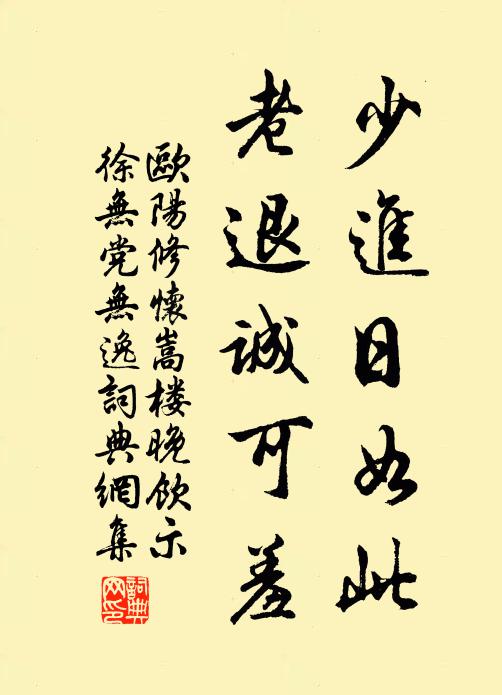 少進日如此
老退誠可羞
歐陽修懷嵩楼晚飲示
徐無党無逸詞典網集
詞典网印